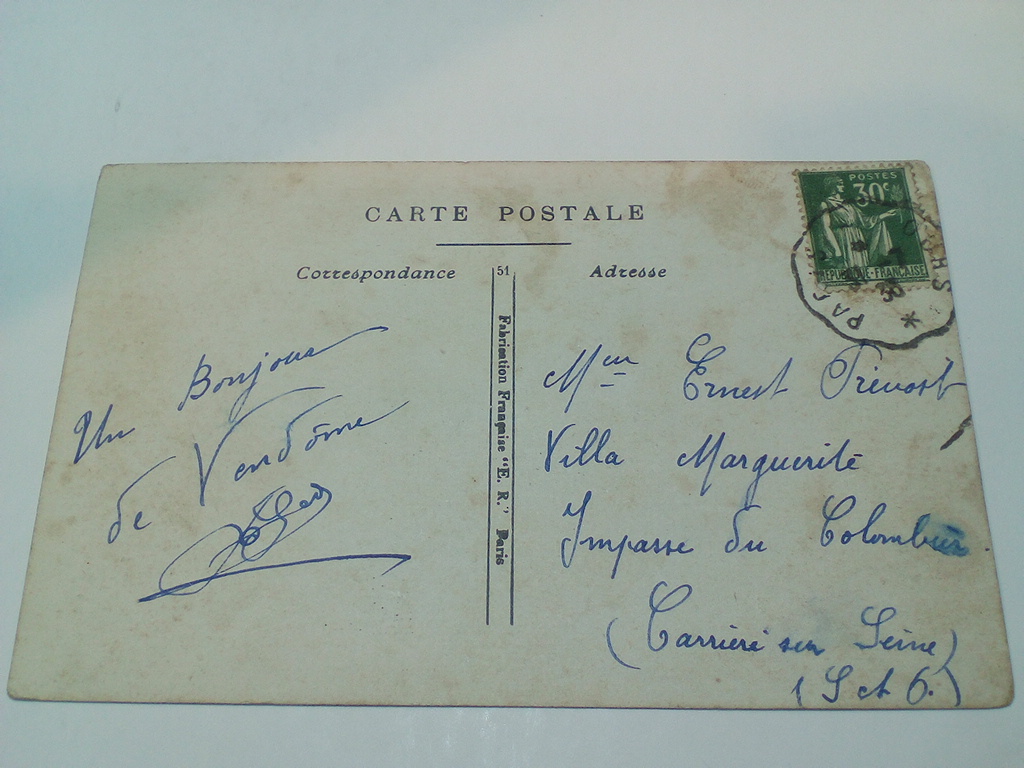 CARTE POSTALE
Correspondance
51
Adresse
Fabrication Française "E. R." Paris
POSTES
30c
RÉPUBLIQUE-FRANÇAISE
Un Bonjour
de Vendôme
Ernest Prévost
Villa Marguerite
Impasse du Colombier
(Carrière sur Seine)
(S et O.)